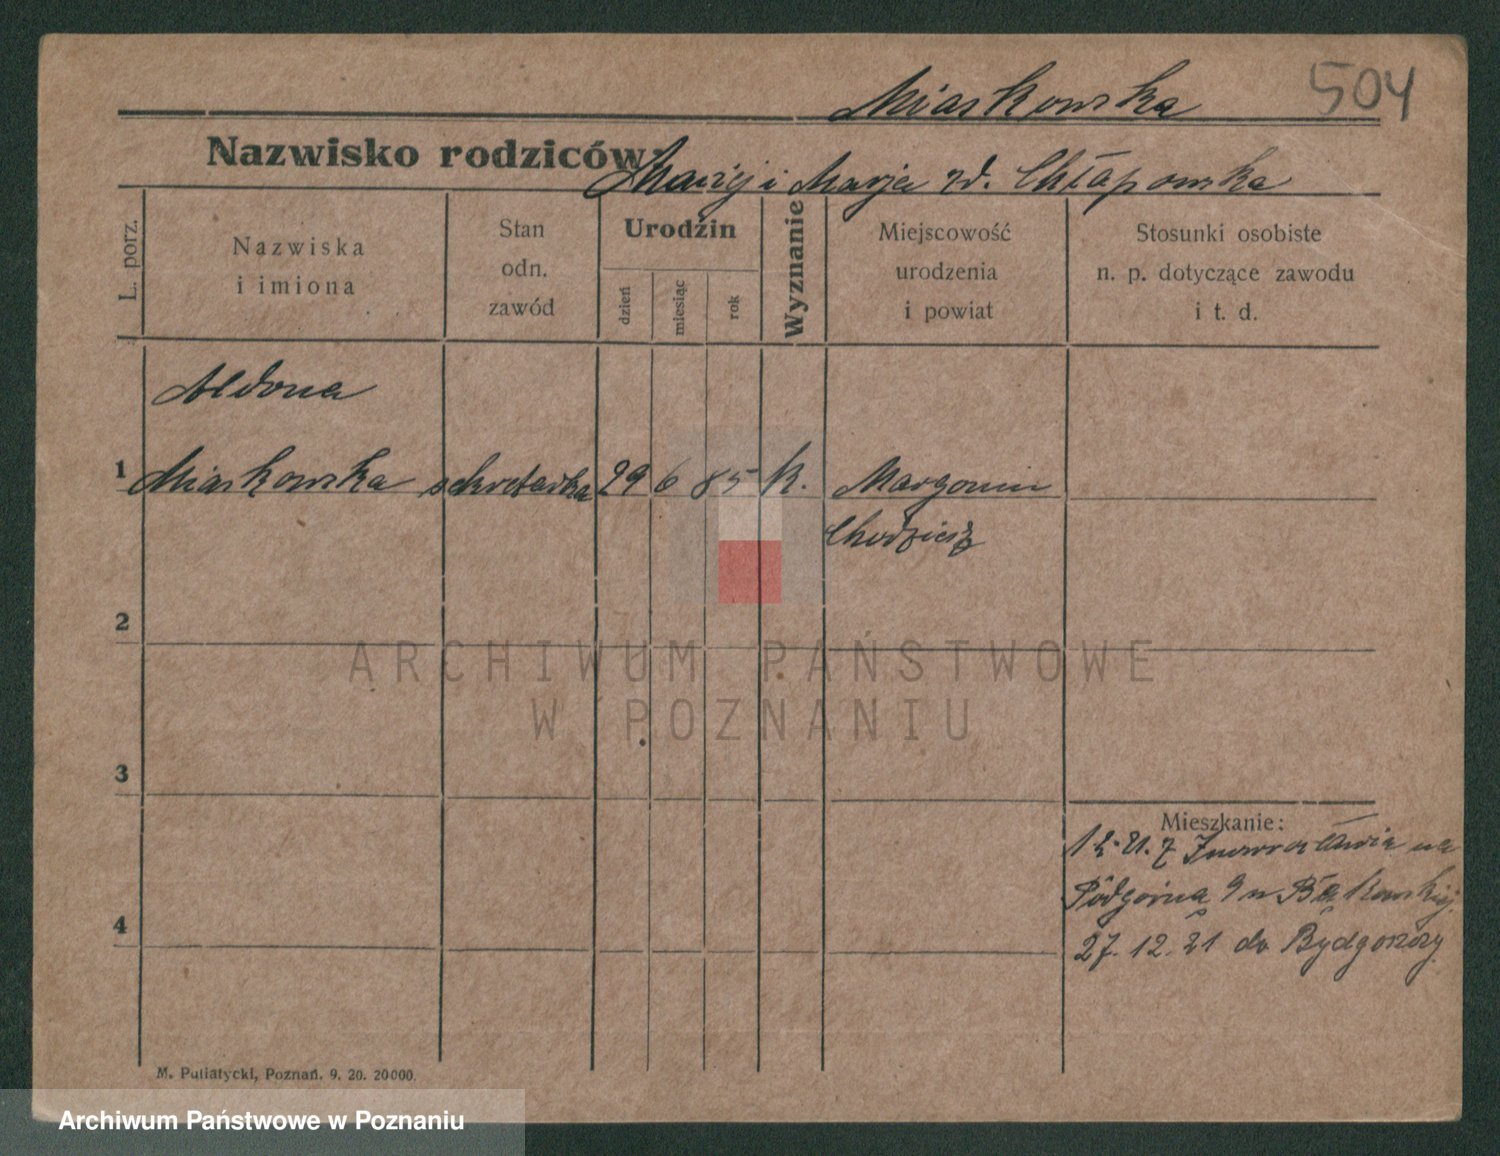 Miaskowska 504
Nazwisko rodziców: Maciej i Marja zd. Chłapowska
L. porz.
Nazwiska
i imiona
Stan
odn.
zawód
Urodzin
dzień
miesiąc
rok
Wyznanie
Miejscowość
urodzenia
i powiat
Stosunki osobiste
n. p. dotyczące zawodu
i t. d.
Aldona
1 Miaskowska sekretarka 29 6 85 K. Margonin
Chodzież
2
3
4
Mieszkanie:
z Inowrocławia na
Podgórna 9 u Bąkowskiej
27.12.21 do Bydgoszczy
M. Putiatycki, Poznań. 9. 20. 20000.
ARCHIWUM PAŃSTWOWE
W POZNANIU
Archiwum Państwowe w Poznaniu